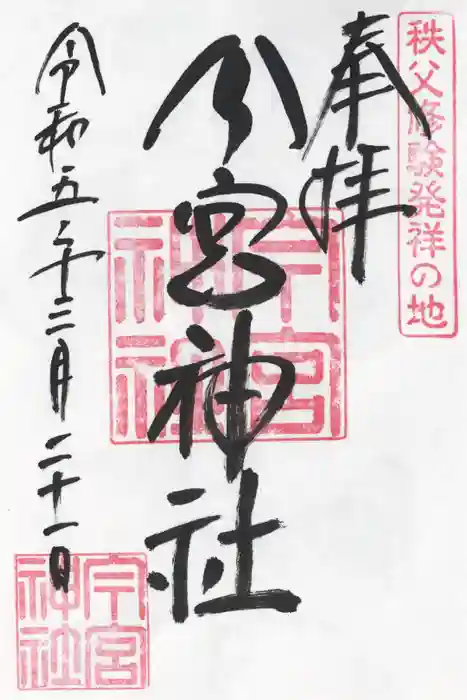 秩父修験発祥の地
奉拝
今宮神社
今宮
神社
令和五年三月二十一日
今宮
神社